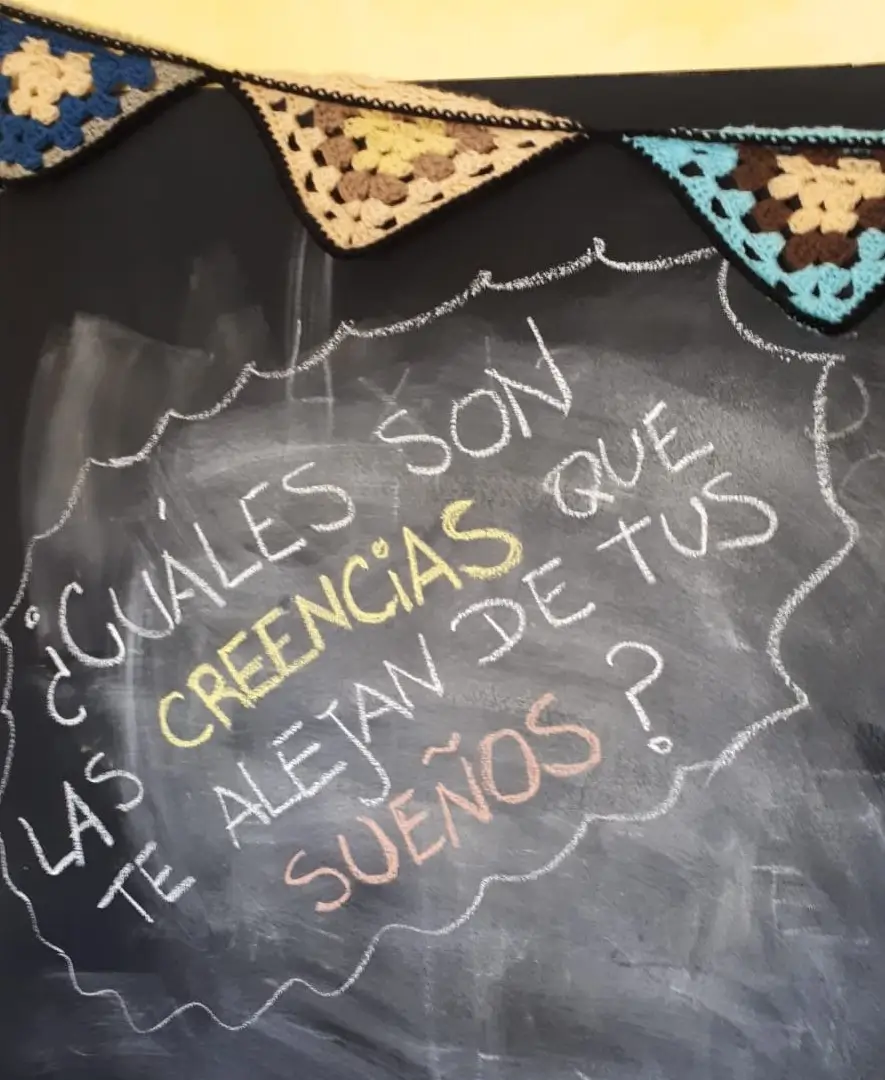 ¿CUÁLES SON
LAS CREENCiAS QUE
TE ALEJAN DE TUS
SUEÑOS?